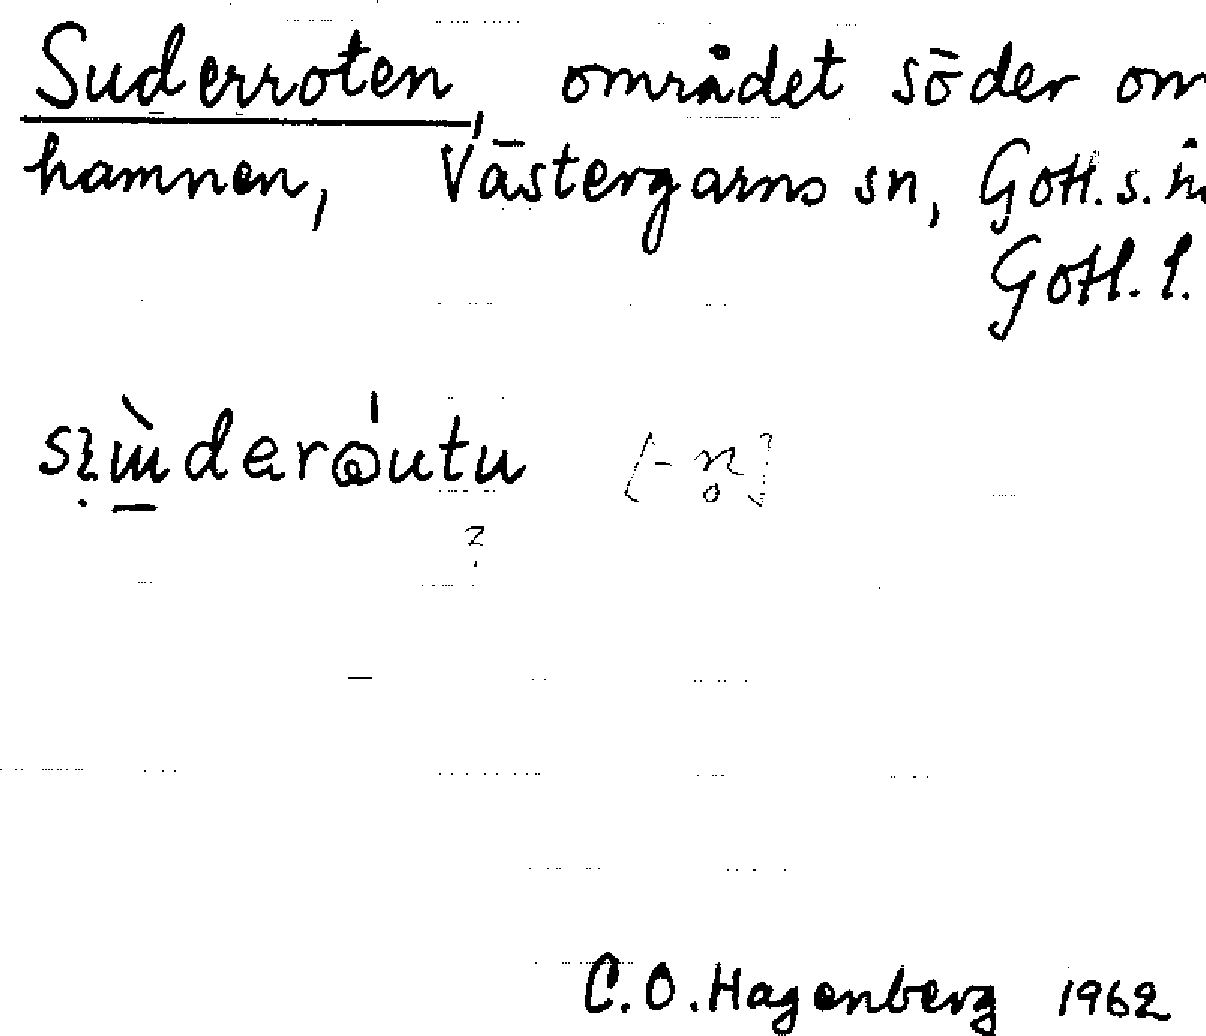 Suderroten, området söder om
hamnen, Västergarns sn, Gotl. s. hd
Gotl. l.
[-n̥]
?
C.O. Hagenberg 1962